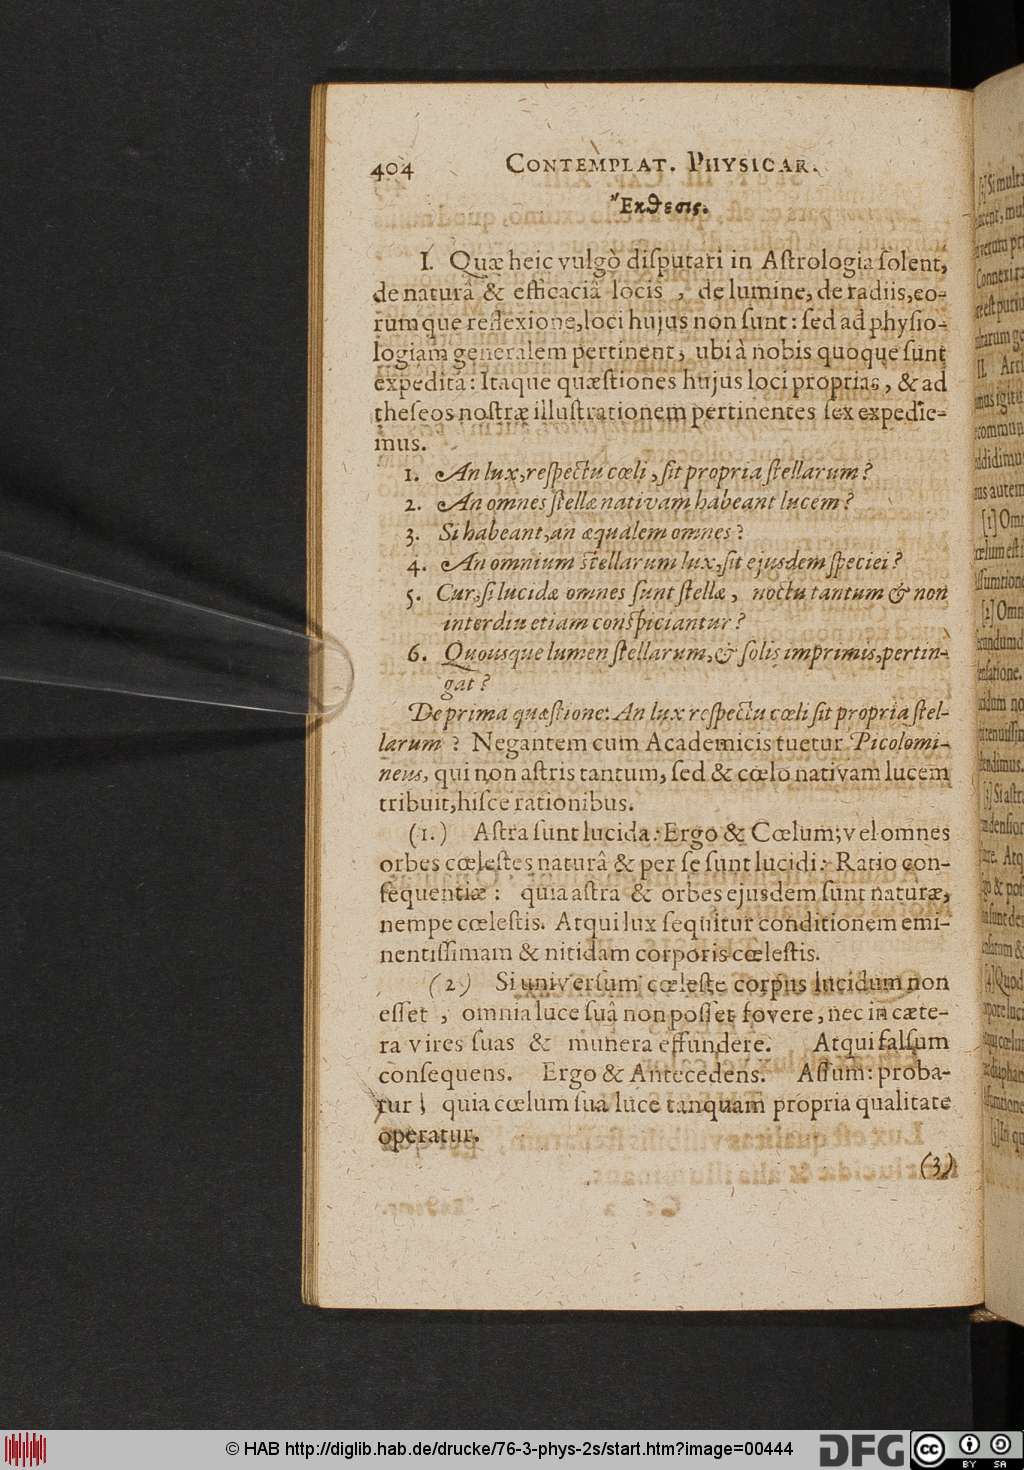 404 CONTEMPLAT. PHYSICAR.
Ἔκθεσις.
I. Quæ heic vulgò diſputari in Aſtrologia ſolent,
de naturâ & efficaciâ locis, de lumine, de radiis, eo-
rumque reflexione, loci hujus non ſunt: ſed ad phyſio-
logiam generalem pertinent, ubi à nobis quoque ſunt
expedita: Itaque quæſtiones hujus loci proprias, & ad
theſeos noſtræ illuſtrationem pertinentes ſex expedie-
mus.
1. An lux, reſpectu cœli, ſit propria ſtellarum?
2. An omnes ſtellæ nativam habeant lucem?
3. Si habeant, an æqualem omnes?
4. An omnium ſtellarum lux, ſit ejusdem ſpeciei?
5. Cur, ſi lucidæ omnes ſunt ſtellæ, noctu tantum & non
interdiu etiam conſpiciantur?
6. Quousque lumen ſtellarum, & ſolis imprimis, pertin-
gat?
De prima quæſtione: An lux reſpectu cœli ſit propria ſtel-
larum? Negantem cum Academicis tuetur Picolomi-
neus, qui non aſtris tantum, ſed & cœlo nativam lucem
tribuit, hiſce rationibus.
(1.) Aſtra ſunt lucida: Ergo & Cœlum; vel omnes
orbes cœleſtes naturâ & per ſe ſunt lucidi: Ratio con-
ſequentiæ: quia aſtra & orbes ejusdem ſunt naturæ,
nempe cœleſtis. Atqui lux ſequitur conditionem emi-
nentiſſimam & nitidam corporis cœleſtis.
(2) Si univerſum cœleſte corpus lucidum non
eſſet, omnia luce ſuâ non poſſet fovere, nec in cæte-
ra vires ſuas & munera effundere. Atqui falſum
conſequens. Ergo & Antecedens. Aſſum: proba-
tur; quia cœlum ſua luce tanquam propria qualitate
operatur.
(3)
© HAB http://diglib.hab.de/drucke/76-3-phys-2s/start.htm?image=00444
DFG
cc BY SA